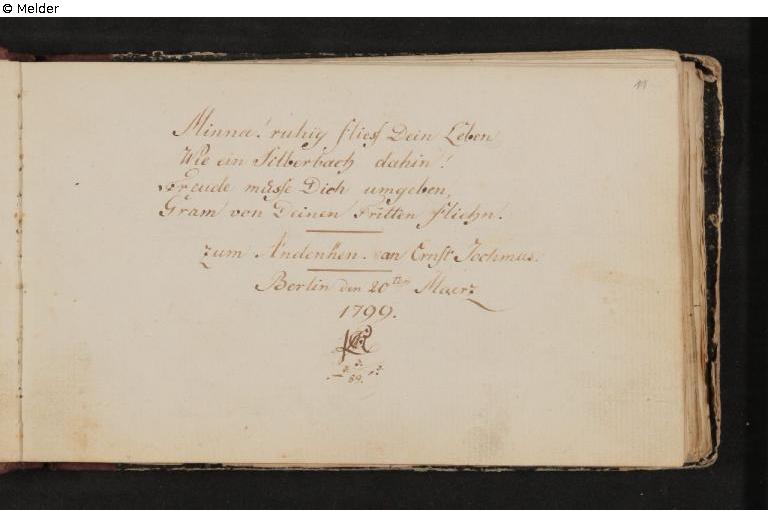 © Melder
Minna! ruhig fliess Dein Leben
Wie ein Silberbach dahin!
Freude müsse Dich umgeben,
Gram von Deinen Tritten fliehn!
zum Andenken an Ernst Jochmus.
Berlin den 20ten Maerz
1799.